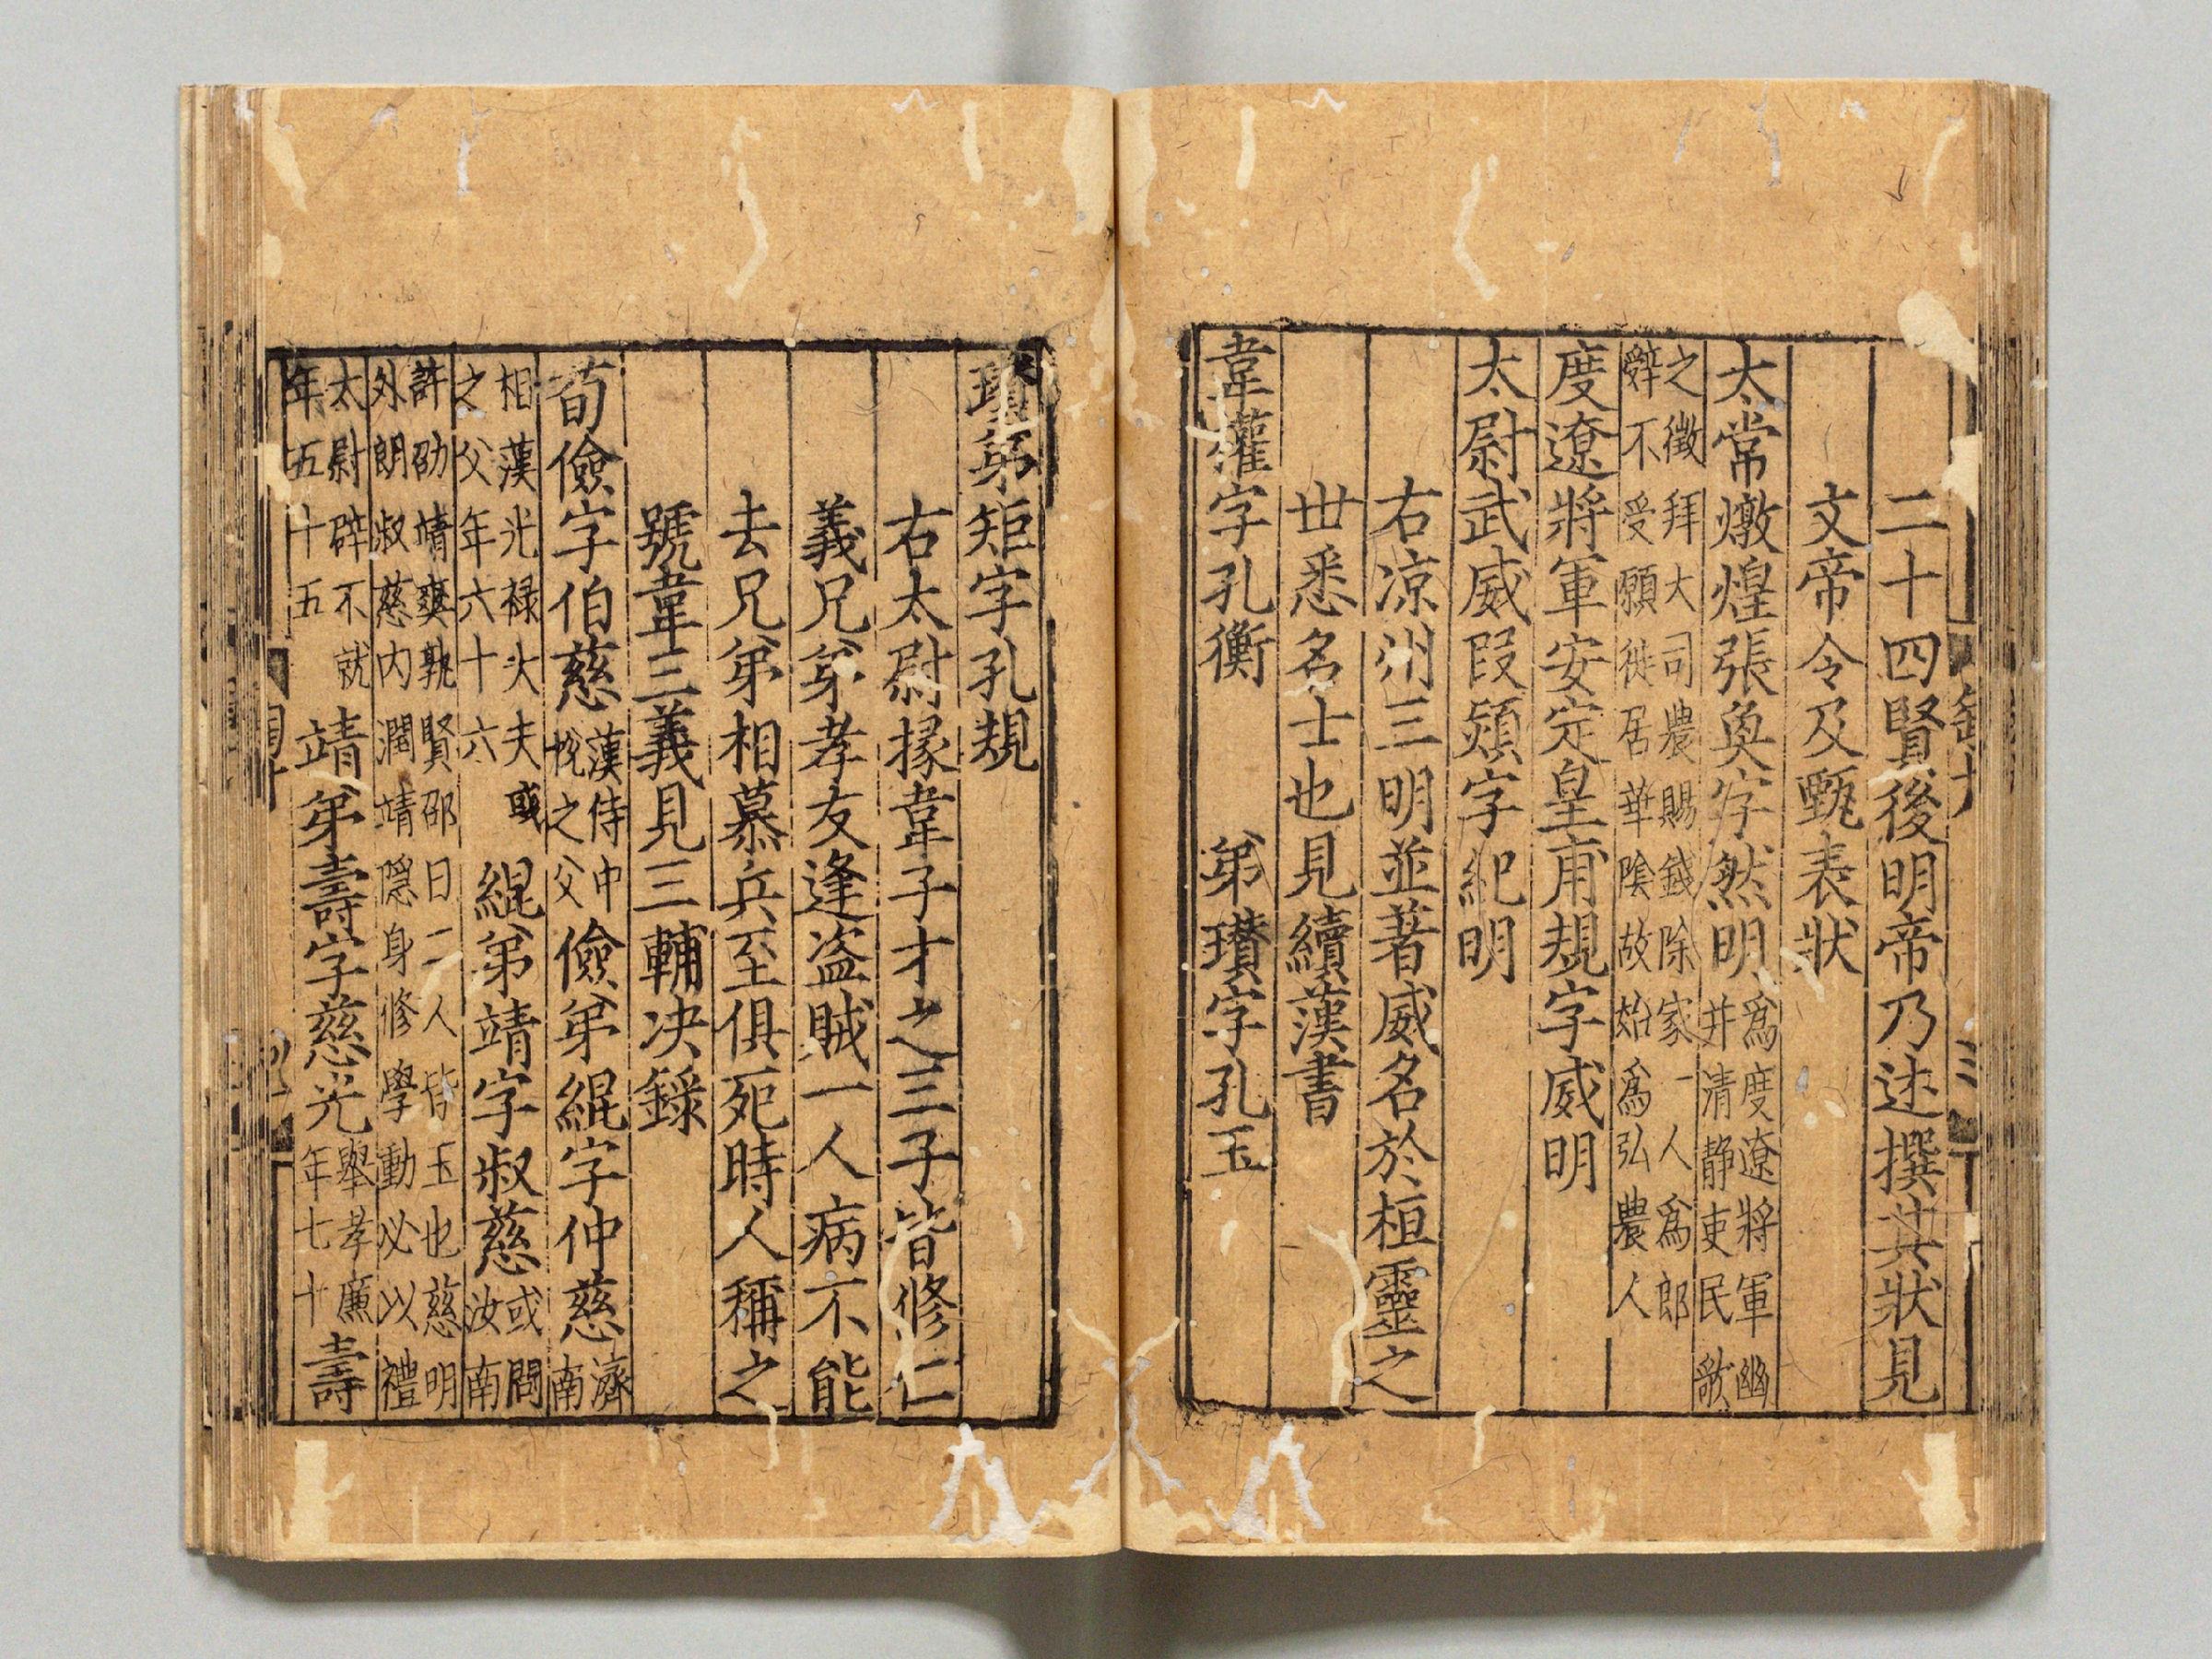 二十四賢後明帝乃述撰其狀見
文帝令及甄表狀
太常燉煌張奐字然明爲度遼將軍幽
并清静吏民歌
之徵拜大司農賜錢除家一人爲郎
辤不受願徙居華陰故始爲弘農人
度遼將軍安定皇甫規字威明
太尉武威段熲字紀明
右凉州三明並著威名於桓靈之
世悉名士也見續漢書
韋權字孔衡　弟瓚字孔玉
瓚弟矩字孔規
右太尉掾韋子才之三子皆修仁
義兄弟孝友逢盗賊一人病不能
去兄弟相慕兵至俱死時人稱之
號韋三義見三輔决錄
荀儉字伯慈漢侍中
悅之父儉弟緄字仲慈濟
南
相漢光禄大夫彧
之父年六十六緄弟靖字叔慈或問
汝南
許劭靖爽孰賢邵曰二人皆玉也慈明
外朗叔慈内潤靖隠身修學動必以禮
太尉辟不就
年五十五靖弟壽字慈光舉孝廉
年七十壽